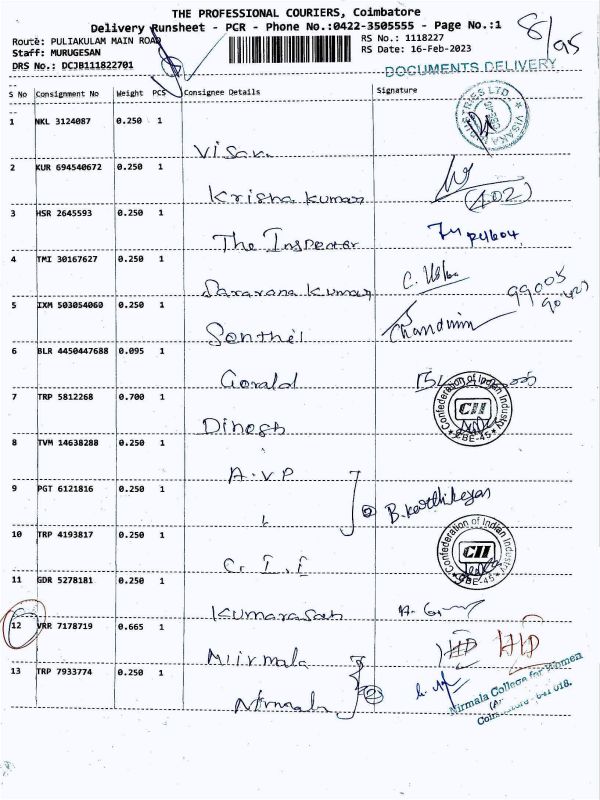 THE PROFESSIONAL COURIERS, Coimbatore
Delivery Runsheet - PCR - Phone No.:0422-3505555 - Page No.:1
Route: PULIAKULAM MAIN ROAD
RS No.: 1118227
Staff: MURUGESAN
RS Date: 16-Feb-2023
DRS No.: DCJB111822701
8/95
DOCUMENTS DELIVERY
S No Consignment No Weight PCS Consignee Details Signature
1 NKL 3124087 0.250 1
VISAKA INDUSTRIES LTD.
2 KUR 694540672 0.250 1
Krishna Kumar
(402)
3 HSR 2645593 0.250 1
The Inspector
4 TMI 30167627 0.250 1
Saravana Kumar
5 IXM 503054060 0.250 1
Senthil
6 BLR 4450447688 0.095 1
Gorald
7 TRP 5812268 0.700 1
Confederation of Indian Industry
CII
CBE-45
Dinosh
8 TVM 14638288 0.250 1
A.V.P
9 PGT 6121816 0.250 1
② B.karthikeyan
10 TRP 4193817 0.250 1
C.I.I
Confederation of Indian Industry
CII
CBE-45
11 GDR 5278181 0.250 1
Kumarasan
12 VRR 7178719 0.665 1
13 TRP 7933774 0.250 1
Nirmala
②
Nirmala College for Women